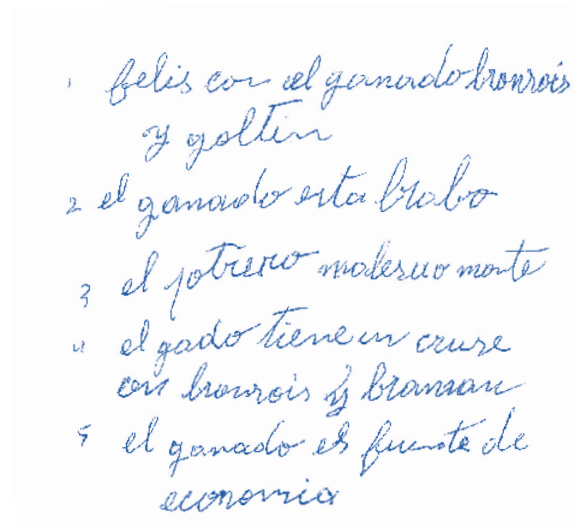 1 felis con el ganado bronrois
y goltin
2 el ganado esta brabo
3 el potrero malesuo monte
4 el gado tiene un cruse
con bronrois y braman
5 el ganado es fuente de
economia